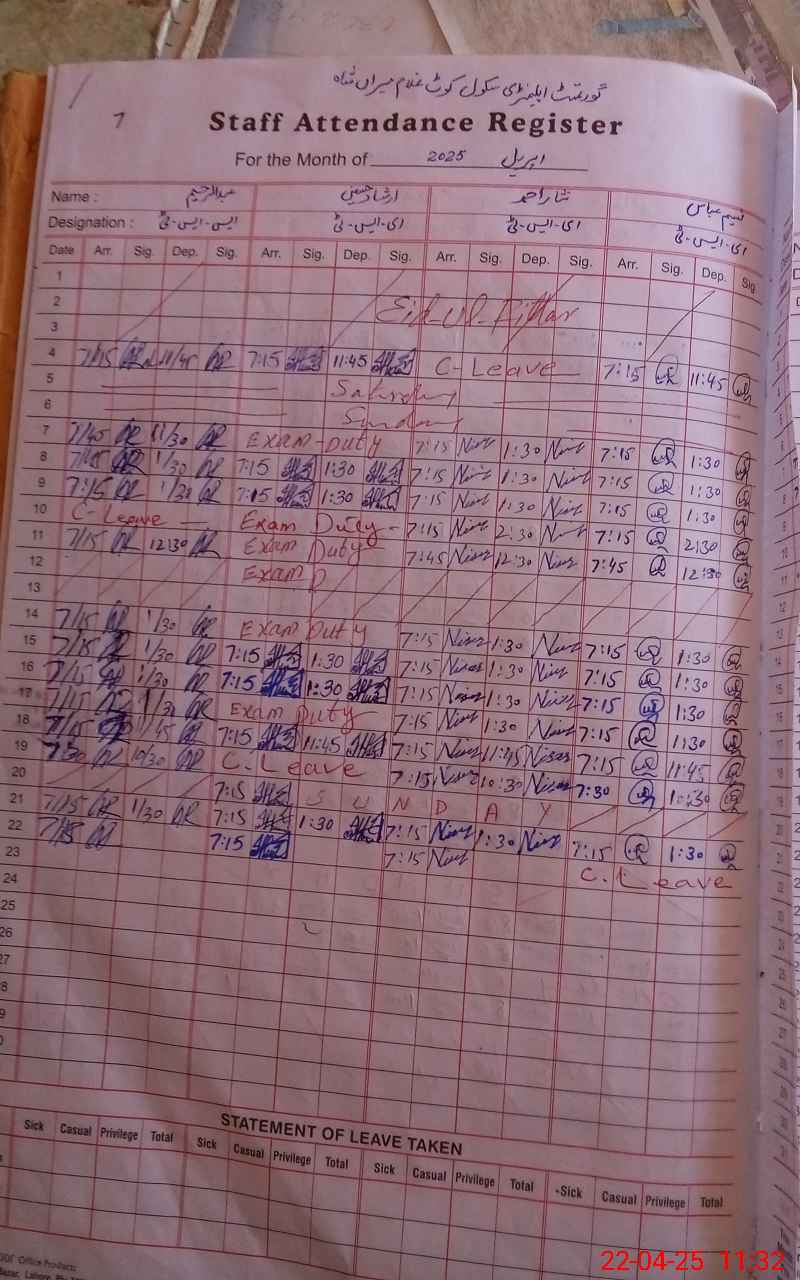 گورنمنٹ ایلیمنٹری سکول کوٹ غلام میراں شاہ
Staff Attendance Register
For the Month of 2025 اپریل
Name : عبدالرحیم ارشاد حسین نثار احمد نسیم عباس
Designation : ایس-ایس-ٹی ای-ایس-ٹی ای-ایس-ٹی ای-ایس-ٹی
Date Arr. Sig. Dep. Sig. Arr. Sig. Dep. Sig. Arr. Sig. Dep. Sig. Arr. Sig. Dep. Sig
1
2 Eid Ul-Fittar
3
4 7/15 11/45 7:15 11:45 C-Leave 7:15 11:45
5 Saturday
6 Sunday
7 7/45 11/30 Exam-Duty 7:15 Nisar 1:30 Nisar 7:15 1:30
8 7/15 1/30 7:15 1:30 7:15 Nisar 1:30 Nisar 7:15 1:30
9 7:15 1/30 7:15 1:30 7:15 Nisar 1:30 Nisar 7:15 1:30
10 C-Leave Exam Duty 7:15 Nisar 2:30 Nisar 7:15 2:30
11 7/15 12:30 Exam Duty 7:45 Nisar 12:30 Nisar 7:45 12:30
12 Exam D
13
14 7/15 1/30 Exam Duty 7:15 Nisar 1:30 Nisar 7:15 1:30
15 7/15 1/30 7:15 1:30 7:15 Nisar 1:30 Nisar 7:15 1:30
16 7/15 1/30 7:15 1:30 7:15 Nisar 1:30 Nisar 7:15 1:30
17 7/15 1/30 Exam Duty 7:15 Nisar 1:30 Nisar 7:15 1:30
18 7/15 11/45 7:15 11:45 7:15 Nisar 11:45 Nisar 7:15 11:45
19 7:30 10/30 C. Leave 7:15 Nisar 10:30 Nisar 7:30 10:30
20 7:15 SUNDAY
21 7/15 1/30 7:15 1:30 7:15 Nisar 1:30 Nisar 7:15 1:30
22 7/15 7:15 7:15 Nisar C. Leave
23
24
25
26
27
8
9
0
STATEMENT OF LEAVE TAKEN
Sick Casual Privilege Total Sick Casual Privilege Total Sick Casual Privilege Total Sick Casual Privilege Total
Office Products
22-04-25 11:32